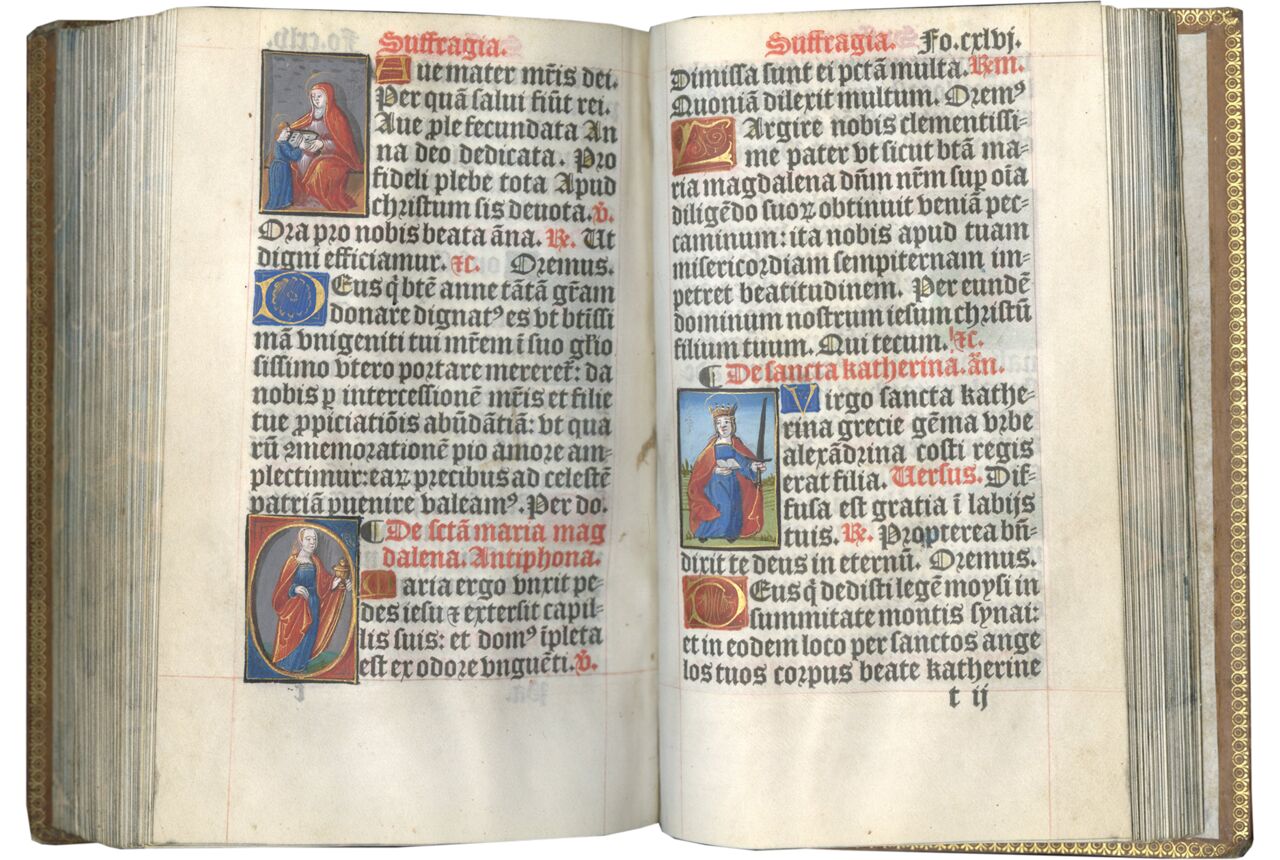 Suffragia.
Aue mater mr̄is dei.
Per quā salui fiūt rei.
Aue ꝓle fecundata An
na deo dedicata. Pro
fideli plebe tota Apud
christum sis deuota. ℣.
Ora pro nobis beata āna. ℞. Ut
digni efficiamur. ⁊c. Oremus.
DEus q̄ btē anne tātā grām
donare dignatꝰ es vt btīssi
mā vnigeniti tui mr̄em ī suo glīo
sissimo vtero portare mereret̄: da
nobis ꝑ intercessionē mr̄is et filie
tue ꝓpiciatiōis abūdātiā: vt qua
rū ꝯmemorationē pio amore am-
plectimur: eaꝝ precibus ad celestē
patriā ꝑuenire valeamꝰ. Per do.
¶ De sctā maria mag
dalena. Antiphona.
Maria ergo vnxit pe-
des iesu ⁊ extersit capil-
lis suis: et domꝰ īpleta
est ex odore vnguēti. ℣.
Suffragia. Fo.cxlvj.
Dimissa sunt ei pctā multa. Rm.
Quoniā dilexit multum. Oremꝰ
LArgire nobis clementissi-
me pater vt sicut btā ma-
ria magdalena dn̄m nr̄m suꝑ oīa
diligēdo suoꝝ obtinuit veniā pec-
caminum: ita nobis apud tuam
misericordiam sempiternam im-
petret beatitudinem. Per eundē
dominum nostrum iesum christū
filium tuum. Qui tecum. ⁊c.
¶ De sancta katherina. ān.
Virgo sancta kathe-
rina grecie gēma vrbe
alexādrina costi regis
erat filia. Uersus. Dif-
fusa est gratia ī labijs
tuis. ℞. Propterea bn̄-
dixit te deus in eternū. Oremus.
DEus q̄ dedisti legē moysi in
summitate montis synai:
et in eodem loco per sanctos ange
los tuos corpus beate katherine
t ij